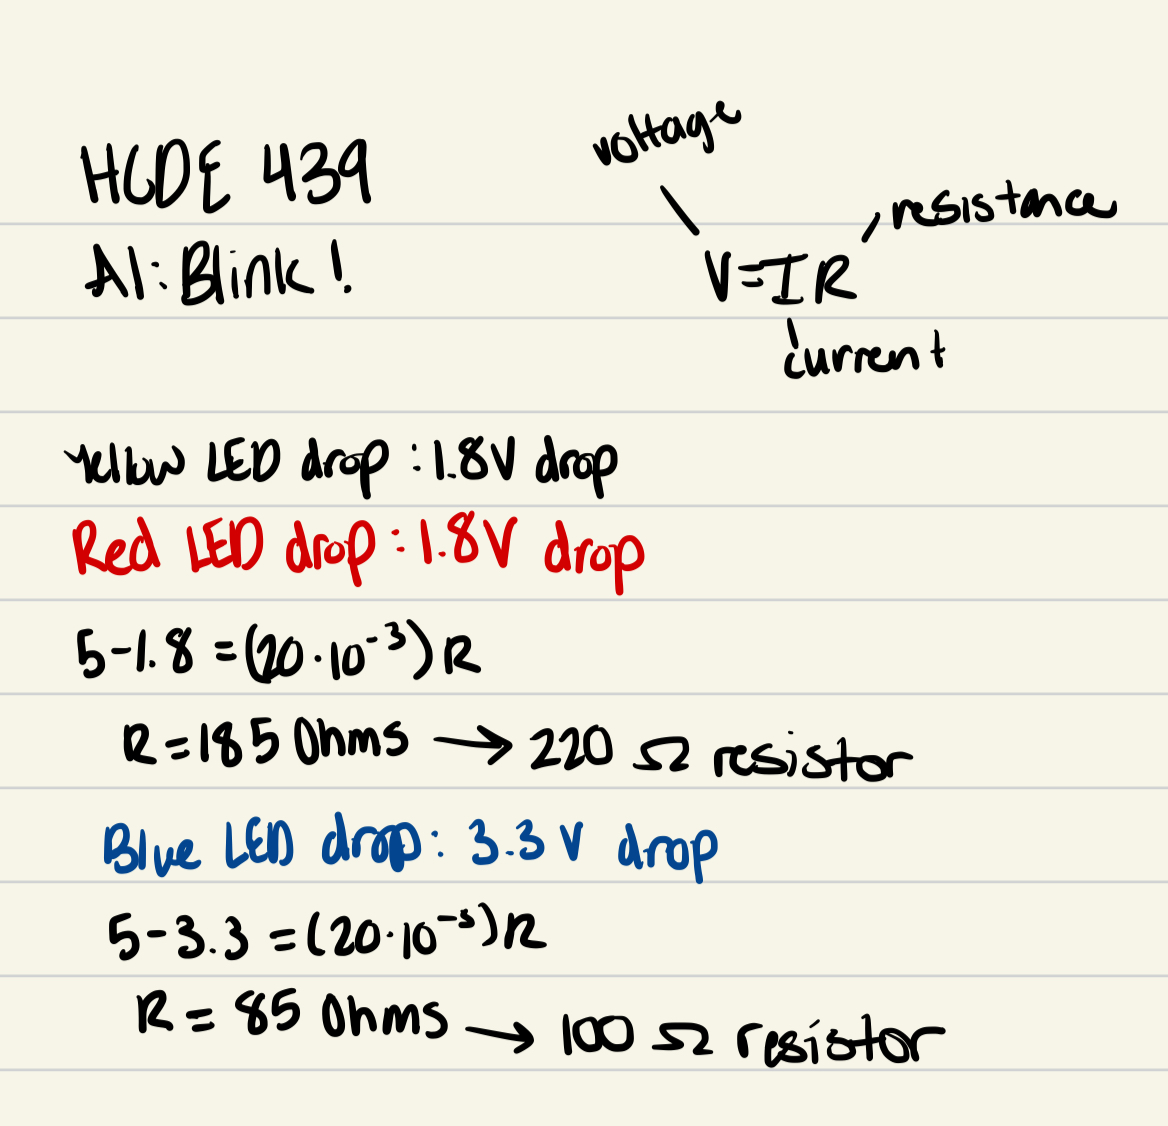 HCDE 439
A1: Blink!
voltage
resistance
V=IR
current
Yellow LED drop: 1.8V drop
Red LED drop: 1.8V drop
5-1.8 = (20·10⁻³)R
R=185 Ohms → 220 Ω resistor
Blue LED drop: 3.3V drop
5-3.3 = (20·10⁻³)R
R = 85 Ohms → 100 Ω resistor